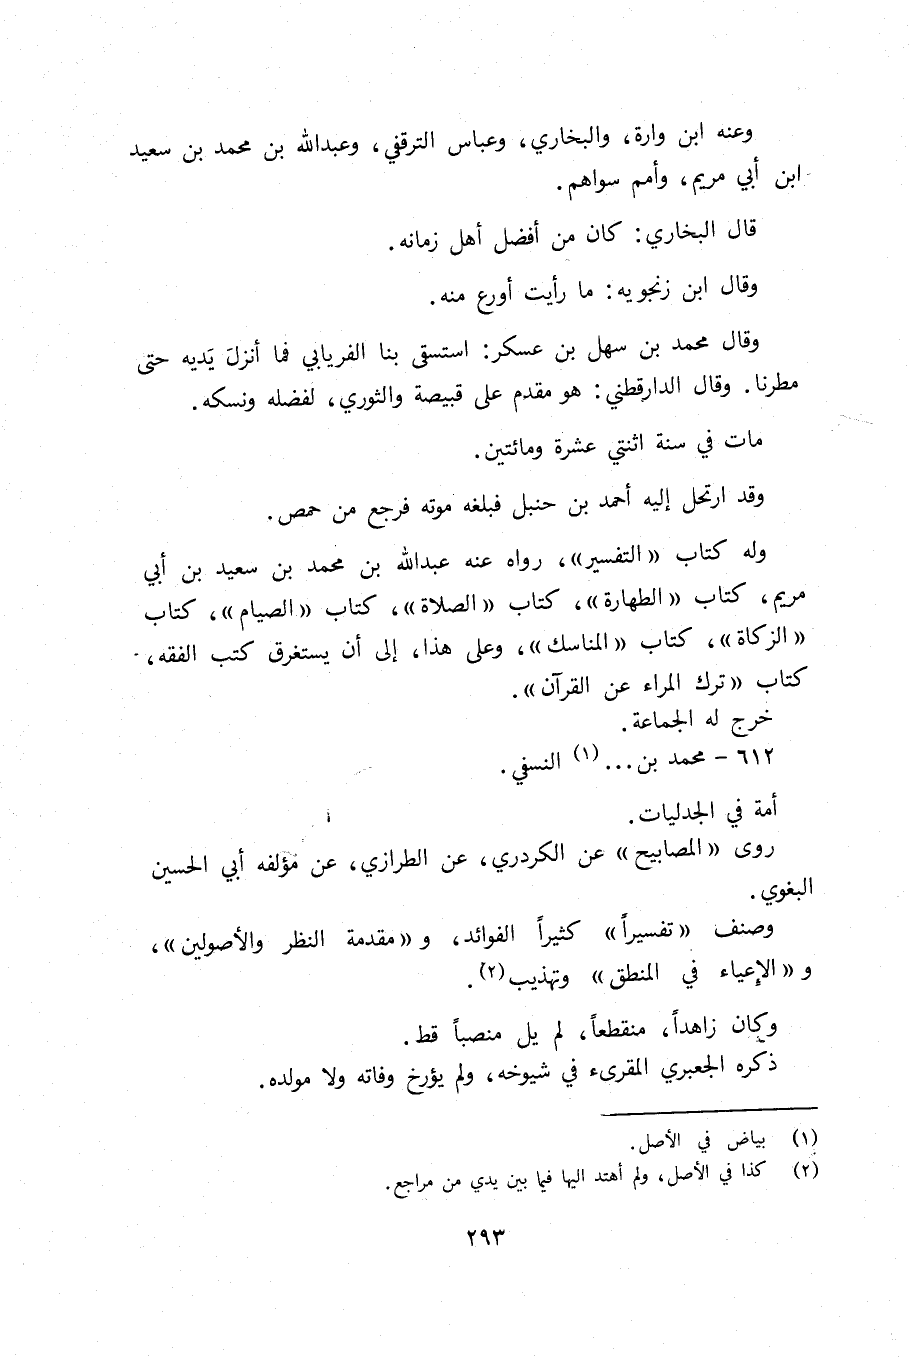 وعنه ابن وارة، والبخاري، وعباس الترقفي، وعبدالله بن محمد بن سعيد
ابن أبي مريم، وأمم سواهم.
قال البخاري: كان من أفضل أهل زمانه.
وقال ابن زنجويه: ما رأيت أورع منه.
وقال محمد بن سهل بن عسكر: استسقى بنا الفريابي فما أنزلَ يَديه حتى
مطرنا. وقال الدارقطني: هو مقدم على قبيصة والثوري، لفضله ونسكه.
مات في سنة اثنتي عشرة ومائتين.
وقد ارتحل إليه أحمد بن حنبل فبلغه موته فرجع من حمص.
وله كتاب «التفسير»، رواه عنه عبدالله بن محمد بن سعيد بن أبي
مريم، كتاب «الطهارة»، كتاب «الصلاة»، كتاب «الصيام»، كتاب
«الزكاة»، كتاب «المناسك»، وعلى هذا، إلى أن يستغرق كتب الفقه،
كتاب «ترك المراء عن القرآن».
خرج له الجماعة.
٦١٢ - محمد بن... (١) النسفي.
أمة في الجدليات.
روى «المصابيح» عن الكردري، عن الطرازي، عن مؤلفه أبي الحسين
البغوي.
وصنف «تفسيراً» كثيراً الفوائد، و«مقدمة النظر والأصولين»،
و«الإعياء في المنطق» وتهذيب(٢).
وكان زاهداً، منقطعاً، لم يل منصباً قط.
ذكره الجعبري المقرىء في شيوخه، ولم يؤرخ وفاته ولا مولده.
(١) بياض في الأصل.
(٢) كذا في الأصل، ولم أهتد اليها فيما بين يدي من مراجع.
٢٩٣